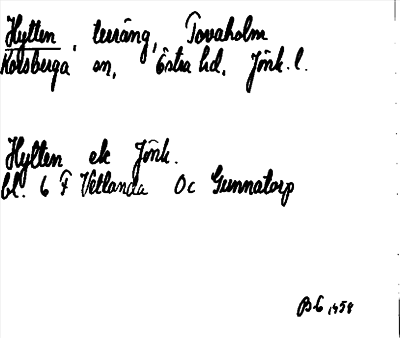 Hylten, terräng, Tovaholm
Korsberga sn, Östra hd, Jönk. l.
Hylten ek Jönk.
bl. 6 F Vetlanda Oc Gunnatorp
1958